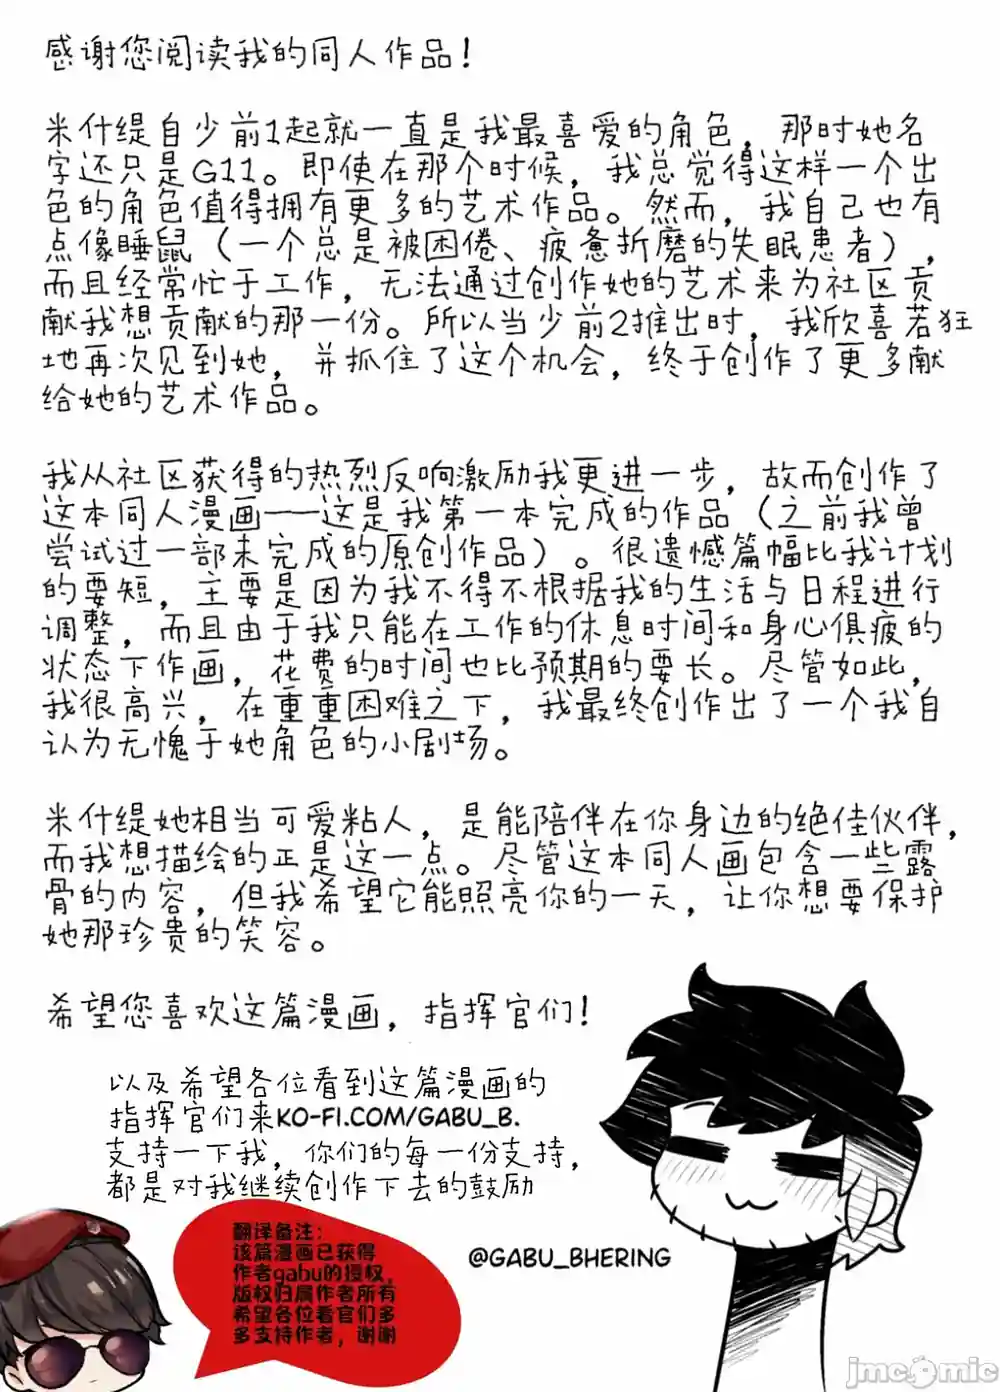 感谢您阅读我的同人作品！
米什缇自少前1起就一直是我最喜爱的角色，那时她名
字还只是G11。即使在那个时候，我总觉得这样一个出
色的角色值得拥有更多的艺术作品。然而，我自己也有
点像睡鼠（一个总是被困倦、疲惫折磨的失眠患者），
而且经常忙于工作，无法通过创作她的艺术来为社区贡
献我想贡献的那一份。所以当少前2推出时，我欣喜若狂
地再次见到她，并抓住了这个机会，终于创作了更多献
给她的艺术作品。
我从社区获得的热烈反响激励我更进一步，故而创作了
这本同人漫画——这是我第一本完成的作品（之前我曾
尝试过一部未完成的原创作品）。很遗憾篇幅比我计划
的要短，主要是因为我不得不根据我的生活与日程进行
调整，而且由于我只能在工作的休息时间和身心俱疲的
状态下作画，花费的时间也比预期的要长。尽管如此，
我很高兴，在重重困难之下，我最终创作出了一个我自
认为无愧于她角色的小剧场。
米什缇她相当可爱粘人，是能陪伴在你身边的绝佳伙伴，
而我想描绘的正是这一点。尽管这本同人画包含一些露
骨的内容，但我希望它能照亮你的一天，让你想要保护
她那珍贵的笑容。
希望您喜欢这篇漫画，指挥官们！
以及希望各位看到这篇漫画的
指挥官们来KO-FI.COM/GABU_B.
支持一下我，你们的每一份支持，
都是对我继续创作下去的鼓励
翻译备注：
该篇漫画已获得
作者gabu的授权，
版权归属作者所有
希望各位看官们多
多支持作者，谢谢
@GABU_BHERING
jmcomic